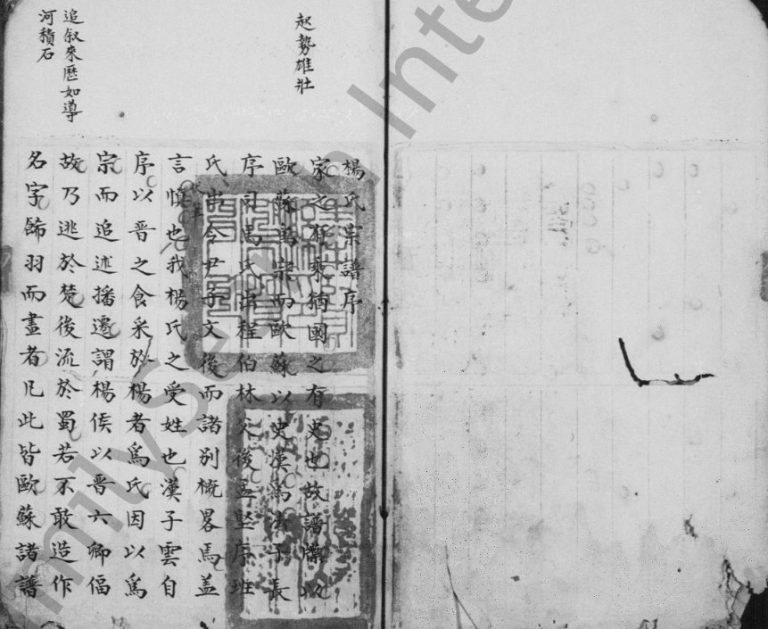 起勢雄壯
楊氏宗譜序
家之有乘猶國之有史也故譜牒以
歐蘇為宗而歐蘇以史漢為法子長
序司馬氏出程伯林父後孟堅序班
氏出令尹子文後而諸別概畧焉蓋
言慎也我楊氏之受姓也漢子雲自
追叙來歷如導
河積石
序以晋之食采於楊者為氏因以為
宗而追述播遷謂楊侯以晋六卿偪
故乃逃於楚後流於蜀若不敢造作
名字飾羽而畫者凡此皆歐蘇諸譜
milySe n Inte